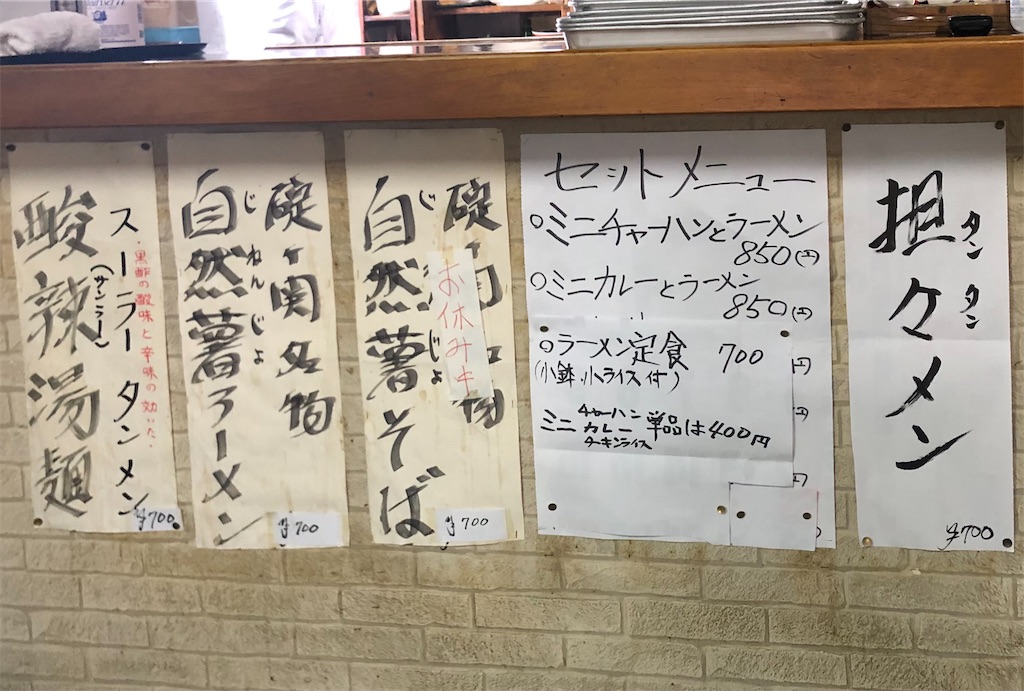 ・黒酢の酸味と辛味の効いた、
スーラータンメン
(サンラー)
酸辣湯麺
¥700
碇ヶ関名物
じねんじょ
自然薯ラーメン
¥700
碇
お休み中
物
じ
じょ
自然薯そば
¥700
セットメニュー
○ミニチャーハンとラーメン
850(円)
○ミニカレーとラーメン
850(円)
○ラーメン定食 700
(小鉢、小ライス付)
ミニ チャーハン カレー チキンライス 単品は400円
タンタン
担々メン
¥700